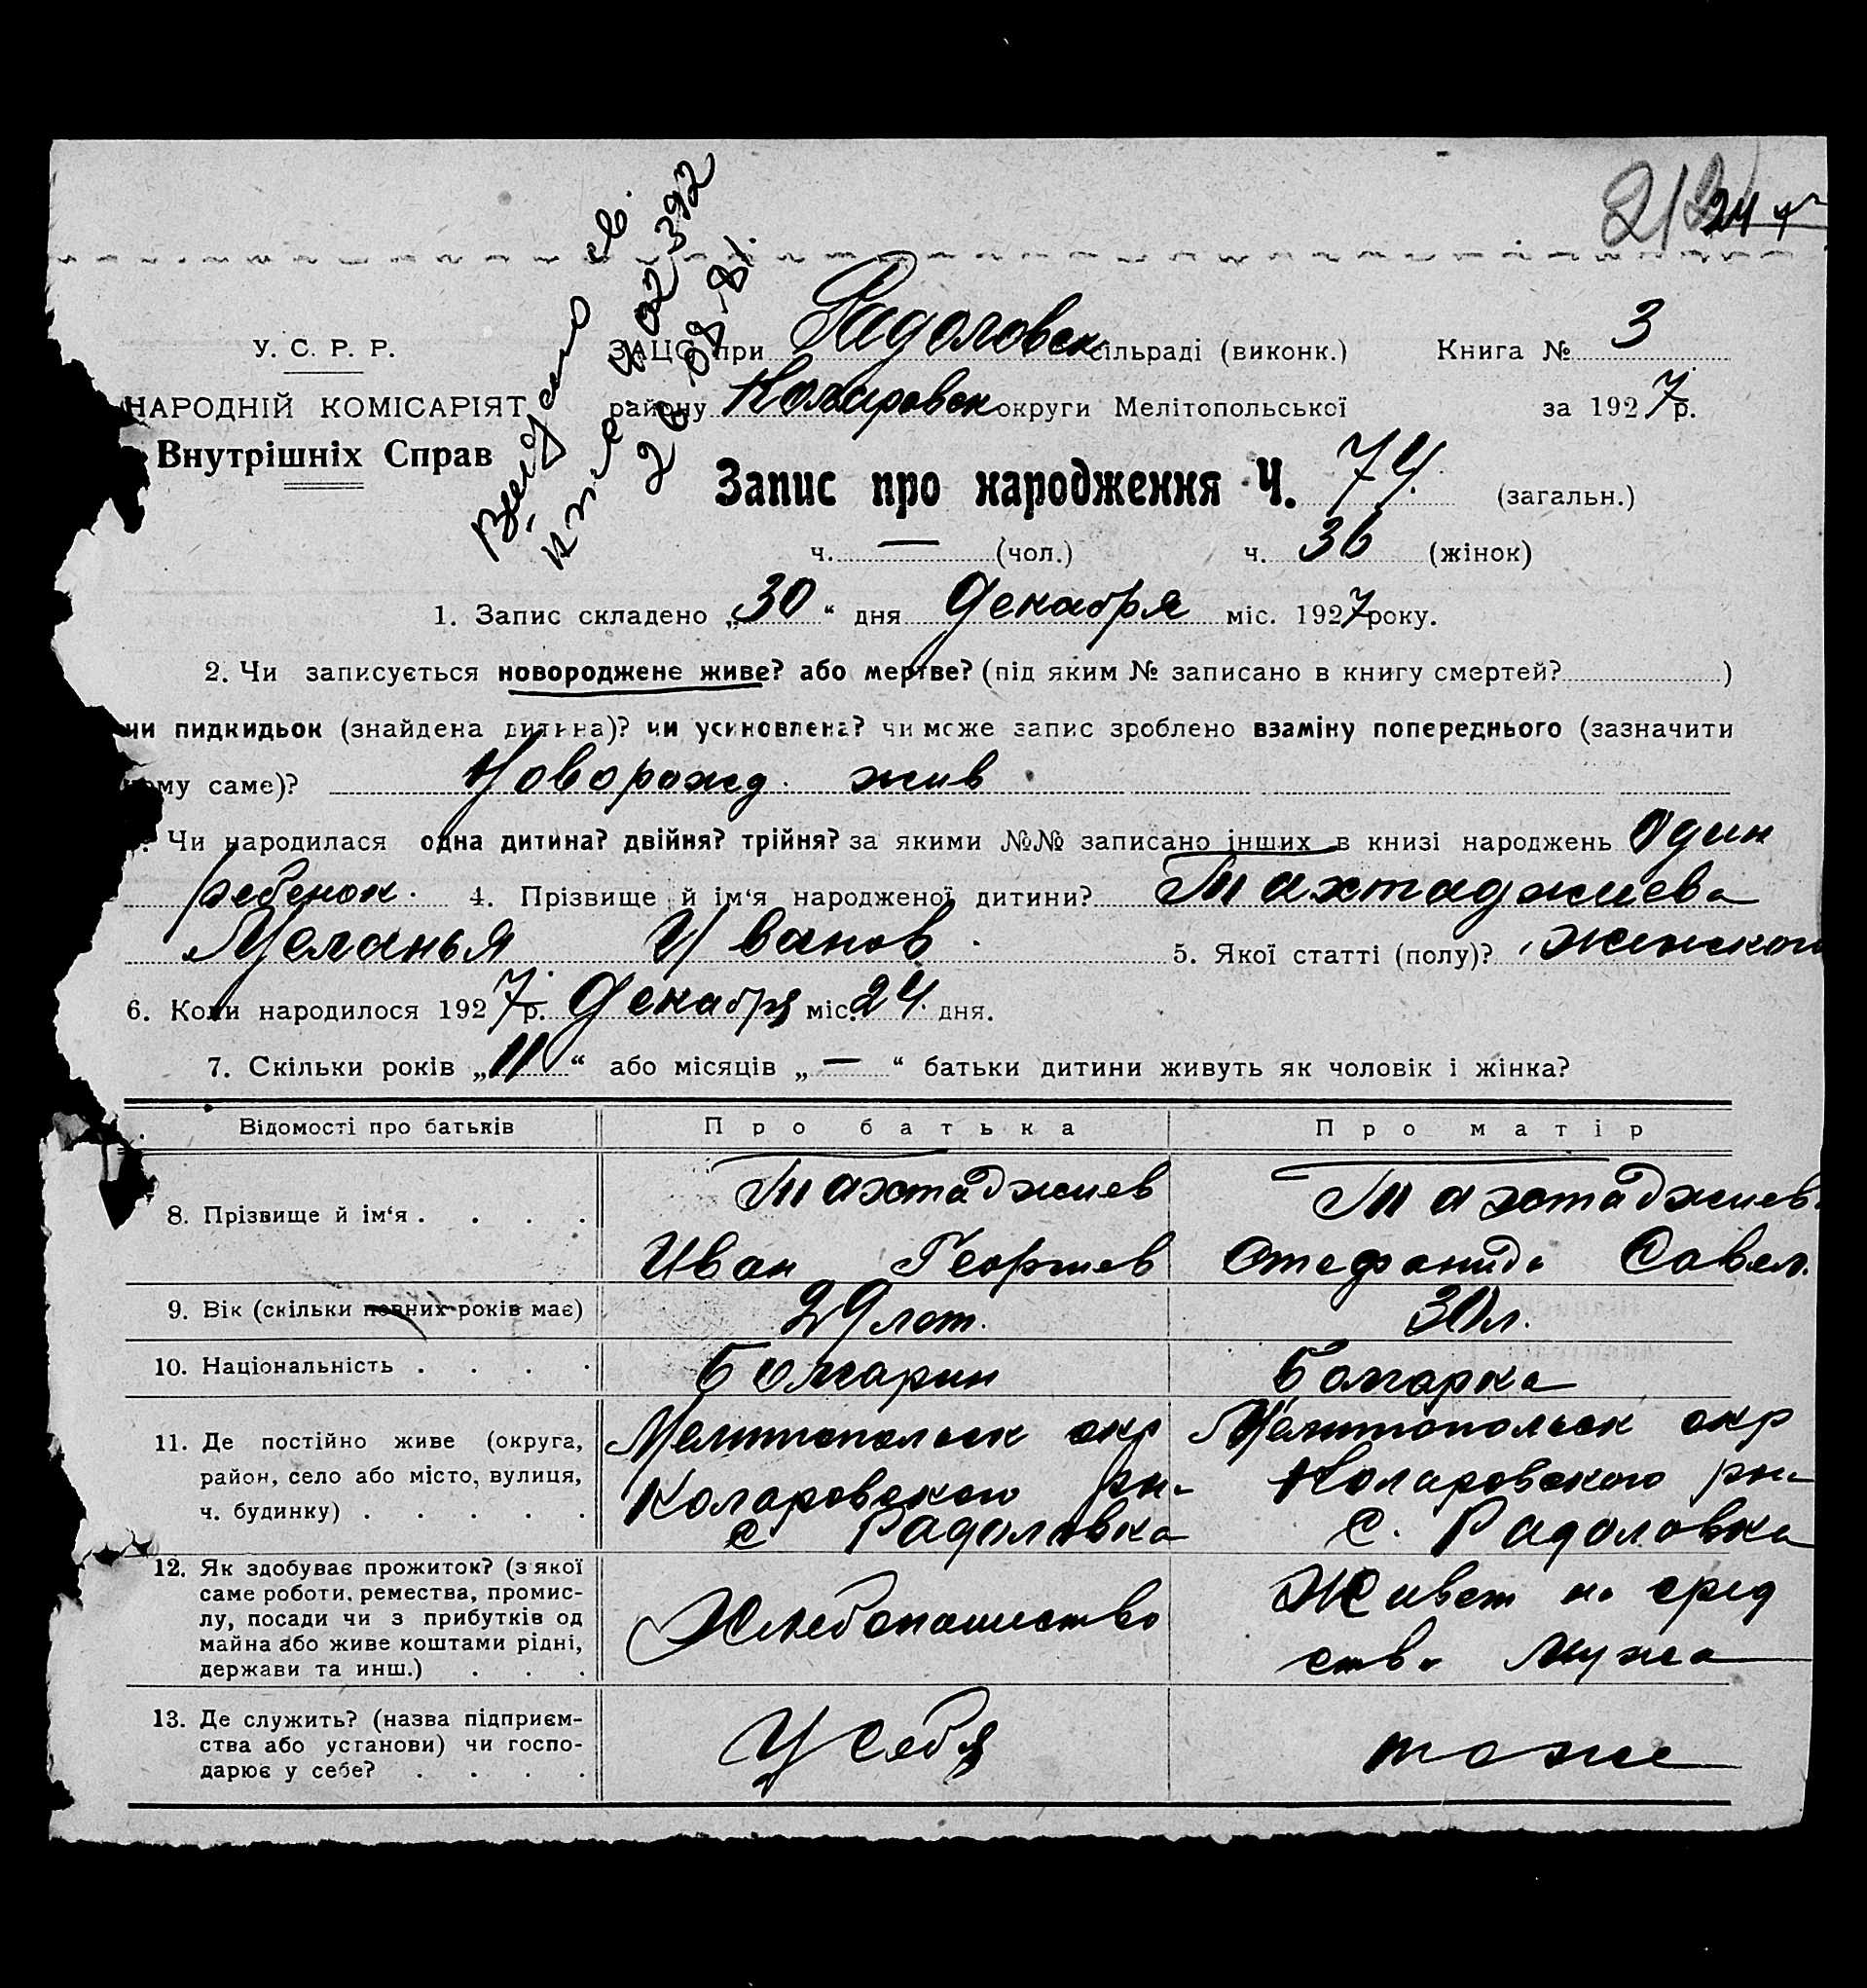 24
У. С. Р. Р.
НАРОДНІЙ КОМІСАРІЯТ
Внутрішніх Справ
Выдано св.
26.08.81
ЗАЦС при Радоловск сільраді (виконк.) Книга № 3
району Коларовск округи Мелітопольської за 1927 р.
Запис про народження Ч. 74. (загальн.)
ч. — (чол.) ч. 36 (жінок)
1. Запис складено „30“ дня Декабря міс. 1927 року.
2. Чи записується новороджене живе? або мертве? (під яким № записано в книгу смертей? )
чи пидкидьок (знайдена дитина)? чи усиновлена? чи може запис зроблено взаміну попереднього (зазначити
чому саме)?Ново рожд. жив.
Чи народилася одна дитина? двійня? трійня? за якими №№ записано інших в книзі народжень Один
ребенок. 4. Прізвище й ім'я народженої дитини? Тахтаджиева
Меланья Иванов. 5. Якої статті (полу)? женского
6. Коли народилося 1927 р. Декабря міс. 24. дня.
7. Скільки років „11“ або місяців „—“ батьки дитини живуть як чоловік і жінка?
Відомості про батьків Про батька Про матір
8. Прізвище й ім'я . . . . Тахтаджиев Тахтаджиев.
Иван Георгиев Стефанида Савел.
9. Вік (скільки повних років має) 29 лет. 30 л.
10. Національність . . . . Болгарин Болгарка
11. Де постійно живе (округа, Мелитопольск окр Мелитопольск окр
район, село або місто, вулиця, Коларовского рн- Коларовского рн-
ч. будинку) . . . . . с Радоловка с. Радоловка
12. Як здобуває прожиток? (з якої
саме роботи, ремества, промис- Живет на сред
лу, посади чи з прибутків од Хлебопашество
майна або живе коштами рідні,
держави та инш.) . . . ства мужа
13. Де служить? (назва підприєм-
ства або установи) чи госпо- У себя тоже
дарює у себе? . . . .